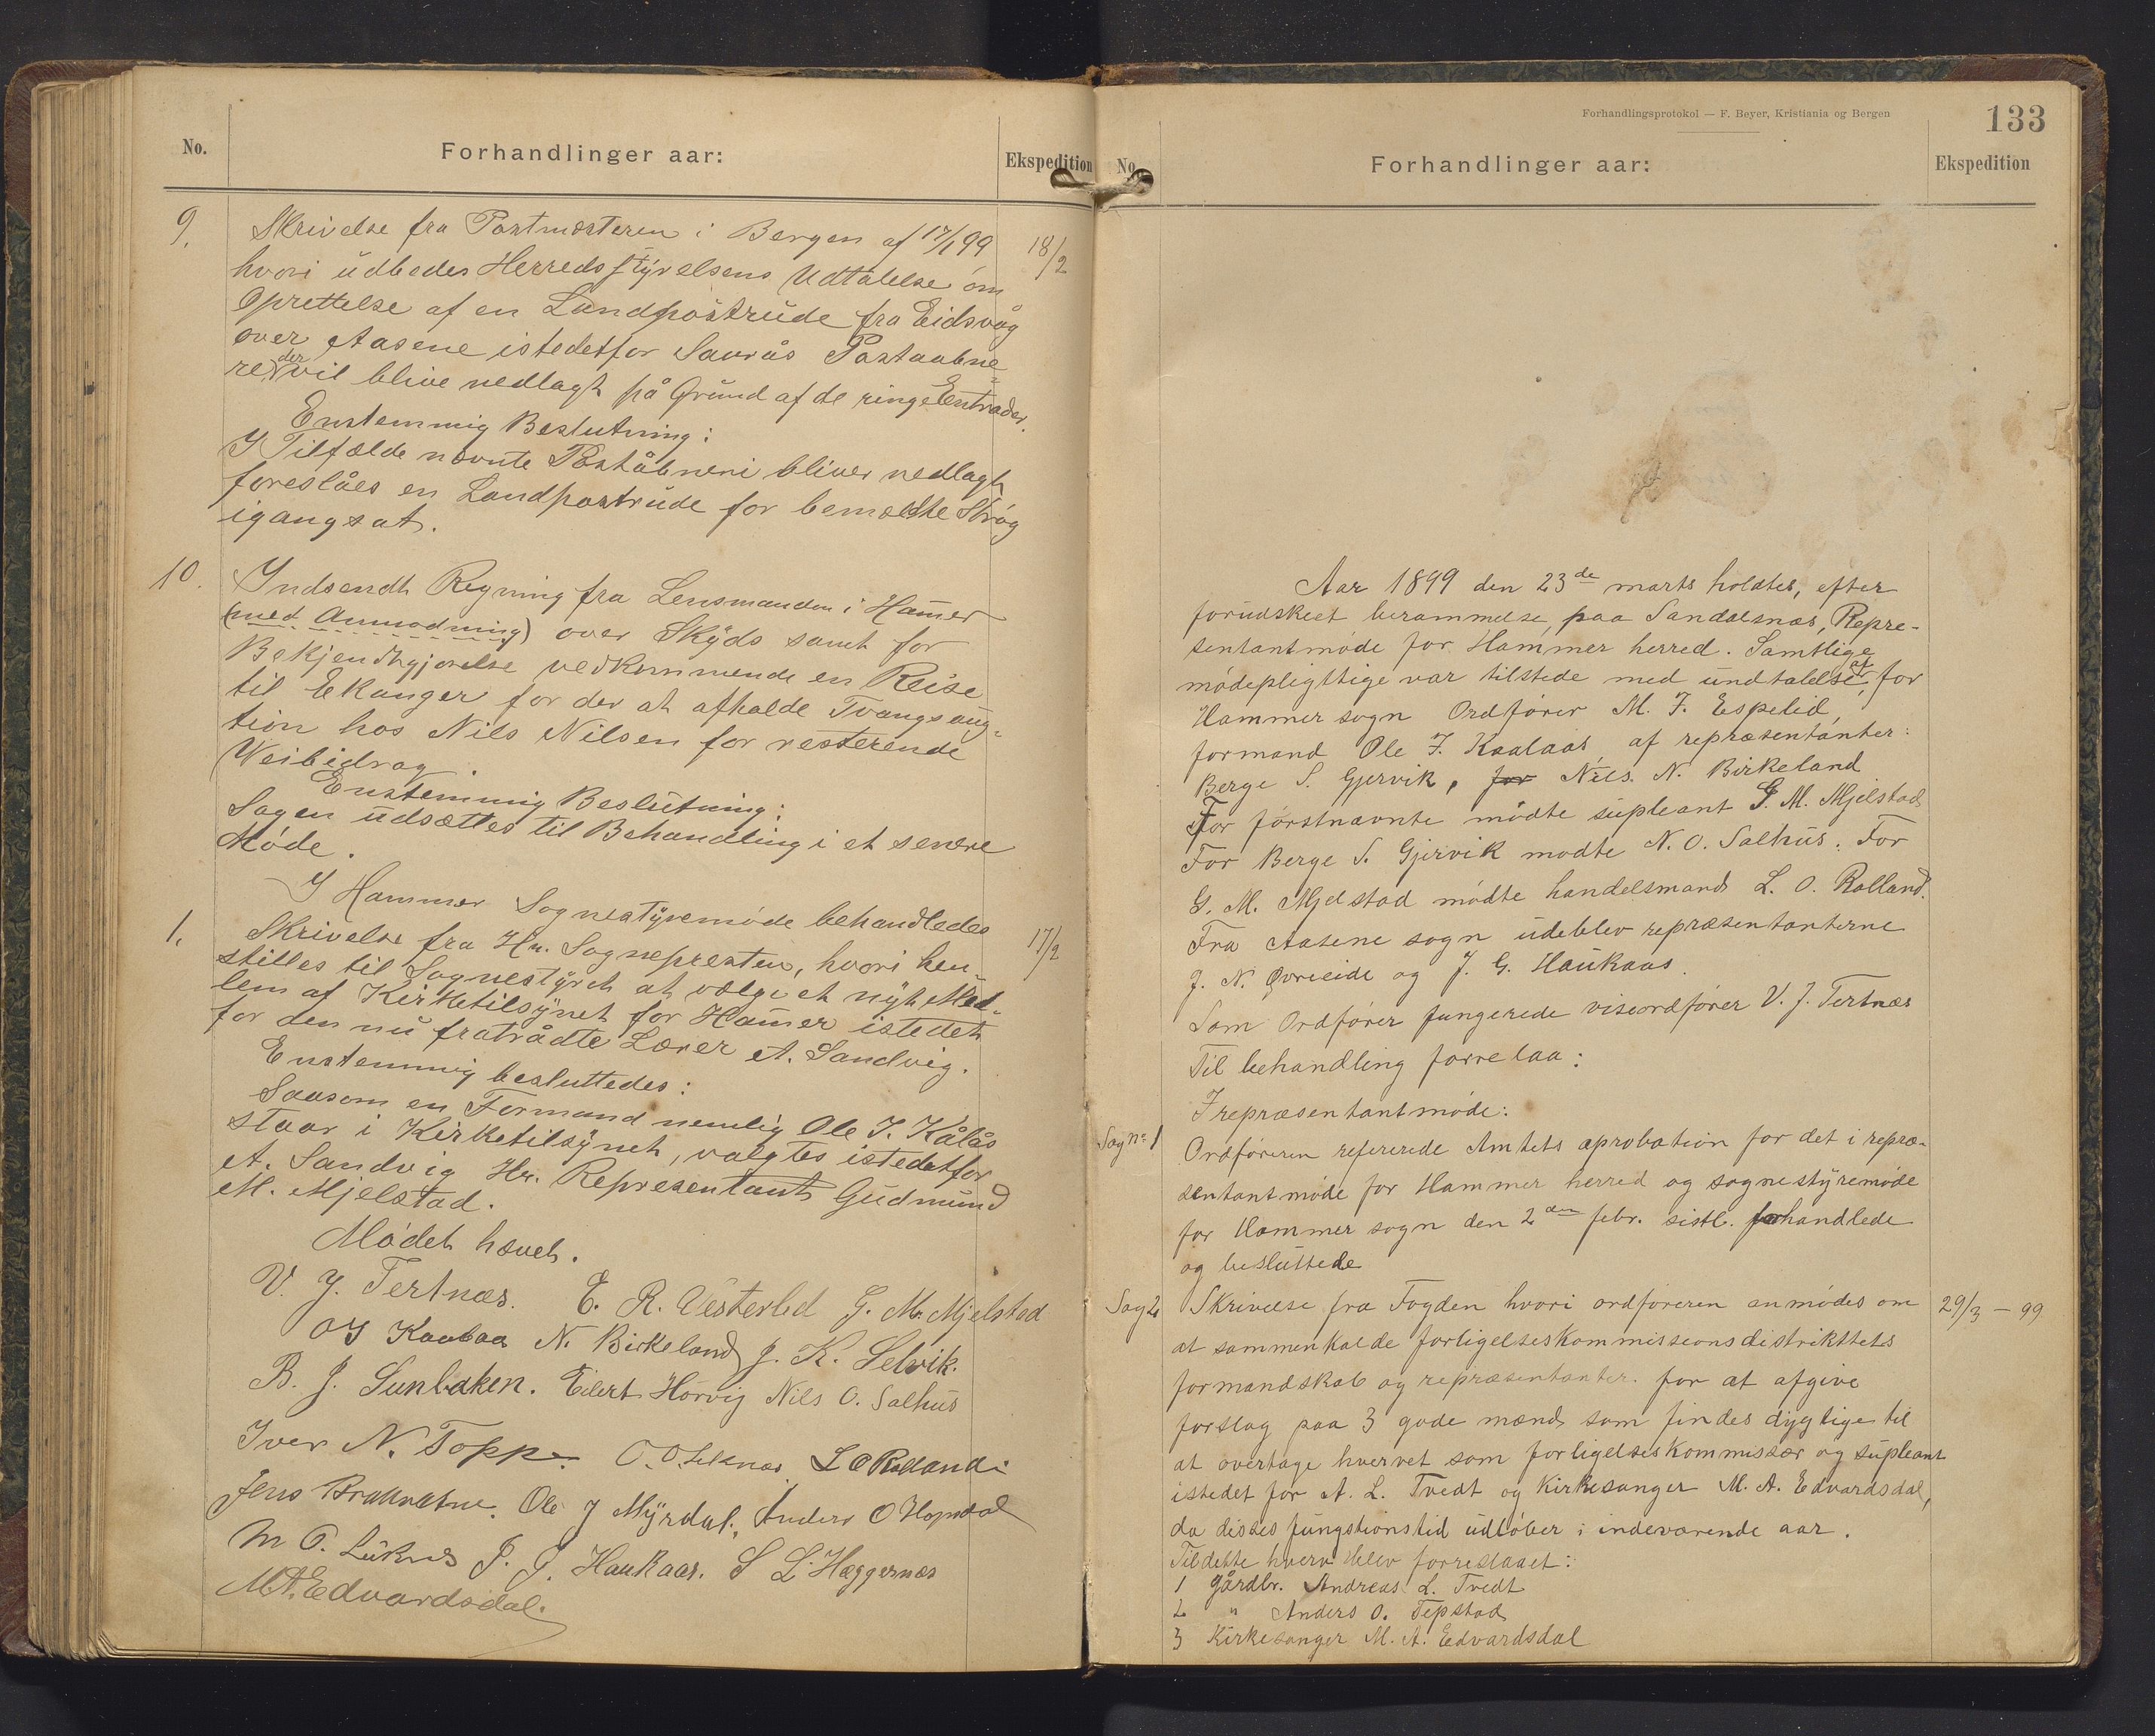 No.
Forhandlinger aar:
Ekspedition
9.
Skrivelse fra Postmesteren i Bergen af 17/1 99
18/2
hvori udbedes Herredsstyrelsens Udtalelse om
Oprettelse af en Landpostrude fra Eidsvåg
over Aasene istedetfor Saurås Postaabne-
reri der vil blive nedlagt på Grund af de ringe Entrader.
Enstemmig Beslutning:
I Tilfælde nævnte Poståbneri bliver nedlagt
foreslåes en Landpostrude for bemældte Strøg
igangsat.
10.
Indsendt Regning fra Lensmanden i Hamer
(med Anmodning) over Skyds samt for
Bekjendtgjørelse vedkommende en Reise
til Ekanger for der at afholde Tvangsaug-
tion hos Nils Nilsen for resterende
Veibidrag.
Enstemmig Beslutning:
Sagen udsættes til Behandling i et senere
Møde.
I Hammer Sognestyremøde behandledes
1.
Skrivelse fra Hr. Sognepresten, hvori hen-
17/2
stilles til Sognestyret at vælge et nyt Med-
lem af Kirketilsynet for Hamer istedet
for den nu fratrådte Lærer A. Sandvig.
Enstemmig besluttedes:
Saasom en Formand nemlig Ole J. Kålås
staar i Kirketilsynet, valgtes istedetfor
A. Sandvig Hr. Representant Gudmund
M. Mjelstad.
Mødet hævet.
V. J. Tertnæs. E. R. Vesterlid G. M. Mjelstad
O J Kaalaas N. Birkeland J. K. Selvik.
B. J. Sunbaken. Eilert Horvig Nils O. Salhus
Iver N. Toppe. O. O. Seknæs L O Rolland
Jens Brakvatne. Ole J Myrdal. Anders O Hopsdal
M O. Lüknes J. J. Haukaas. S L. Hæggernæs
M A. Edvardsdal.
Forhandlingsprotokol — F. Beyer, Kristiania og Bergen
133
No.
Forhandlinger aar:
Ekspedition
Aar 1899 den 23de marts holdtes, efter
forudskeet berammelse, paa Sandalsnæs, Repre-
sentantmøde for Hammer herred. Samtlige
mødepligttige var tilstede med undtalelse af, for
Hammer sogn Ordfører M. J. Espelid,
formand Ole J. Kaalaas, af repræsentanter:
Berge S. Gjervik, for Nils. N. Birkeland
For førstnævnte mødte supleant G. M. Mjelstad
For Berge S. Gjervik mødte N. O. Salhus. For
G. M. Mjelstad mødte handelsmand L. O. Rolland.
Fra Aasene sogn udeblev repræsentanterne
J. N. Øvreeide og J. G. Haukaas.
Som Ordfører fungerede viseordfører V. J. Tertnæs
Til behandling forrelaa:
I repræsentantmøde:
Sag No 1
Ordføreren refererede Amtets aprobation for det i repræ-
sentantmøde for Hammer herred og sognestyremøde
for Hammer sogn den 2den febr. sistl. forhandlede
og besluttede
Sag 2
Skrivelse fra Fogden hvori ordføreren anmødes om
29/3 — 99
at sammenkalde forligelseskommissionsdistrikttets
formandskab og repræsentanter. for at afgive
forslag paa 3 gode mænd som findes dygtige til
at overtage hvervet som forligelseskommissær og supleant
istedet for A. L. Tvedt og Kirkesanger M. A. Edvardsdal,
da disses fungstionstid udløber i indeværende aar.
Til dette hverv blev forreslaaet:
1 gårdbr. Andreas L. Tvedt
2 " Anders O. Tepstad
3 Kirkesanger M. A. Edvardsdal